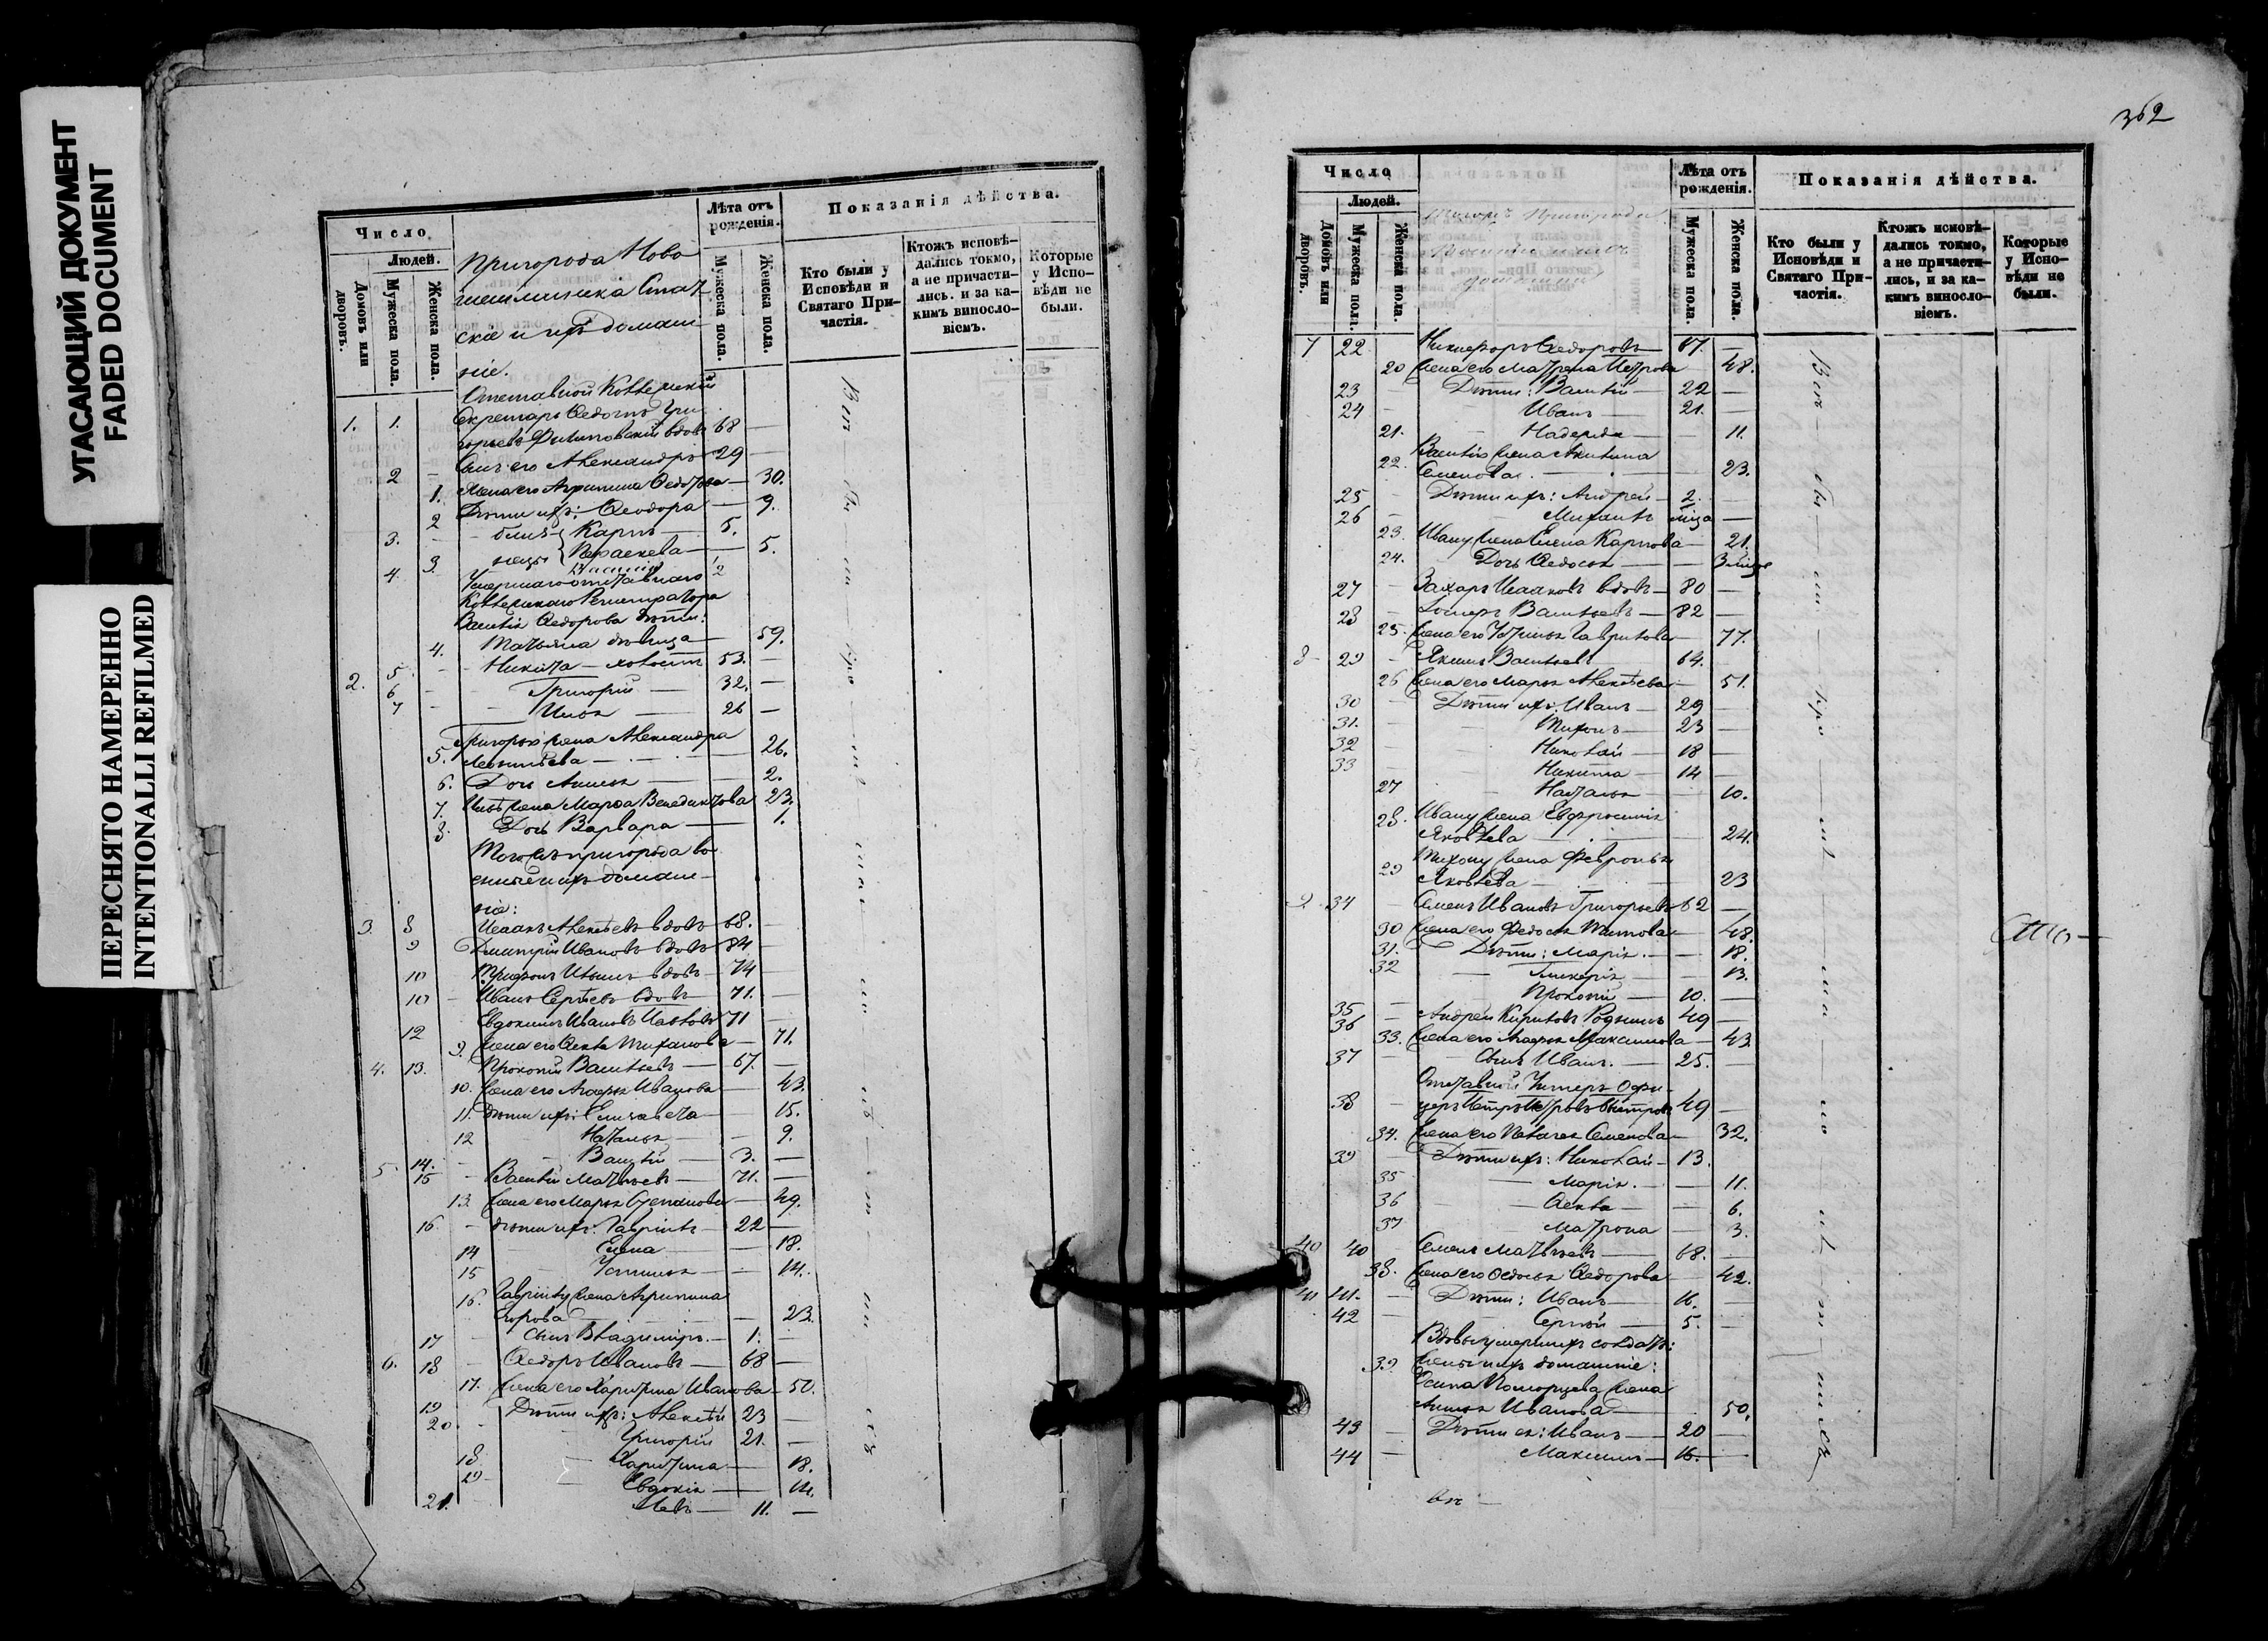 УГАСАЮЩИЙ ДОКУМЕНТ
FADED DOCUMENT
ПЕРЕСНЯТО НАМЕРЕННО
INTENTIONALLI REFILMED
Число
Людей.
Домовъ или дворовъ.
Мужеска пола.
Женска пола.
Пригорода Ново
шешминска Стат
ска и ихъ домаш
ніе.
Лѣта отъ рожденія.
Мужеска пола.
Женска пола.
Показанія дѣйства.
Кто были у Исповѣди и Святаго Причастія.
Ктожъ исповѣдались токмо, а не причастились. и за какимъ винословіемъ.
Которые у Исповѣди не были.
Отставной Коллежскій
1. 1. Секретарь Ѳедотъ Гри
горьевъ Филиповскій вдовъ 68 —
2 — Сынъ его Александръ 29 —
1. Жена его Агрипина Ѳедотова — 30.
2 Дѣти ихъ: Ѳеодора — 9.
3. — близ Карпъ — 5.
3 нецы Параскева — 5.
4. Василій 2
Умершаго отставнаго
Коллежскаго Регистратора
Василія Ѳедорова дѣти:
4. Татьяна дѣвица — 59.
2. 5 — Никита — холостъ 53. —
6 — Григорій — 32. —
7 — Илья — 26 —
Григорья жена Александра
5. Леонтьева — 26.
6. Дочь Анисья — 2.
7. Ильѣ жена Марѳа Венедиктова 23.
8. Дочь Варвара — 1.
Того жъ пригорода во
енные и ихъ домаш-
ніе:
3. 8 Исаакъ Алексѣевъ вдовъ 68. —
9 Дмитрій Ивановъ вдовъ 84 —
10 Трифонъ Ильинъ вдовъ — 74
10 — Иванъ Сергѣевъ вдовъ — 71. —
12 Евдокимъ Ивановъ 71 —
9. Жена его Ѳекла — 71.
4. 13. Прокопій Васильевъ — 67. —
10. Жена его Агафья Иванова — 43.
11. Дѣти ихъ: Елизавета — 15.
12 Наталья — 9.
14. — Василій — 3. —
5 15 — Василій Матвѣевъ — 71. —
13. Жена его Марья Степанова — 49.
16 — дѣти ихъ: Гавріилъ — 22 —
14 Елена — 18.
15 Устинья — 14.
16. Гавріилу жена Агрипина
Егорова — 23.
17 сынъ Владимиръ. — 1. —
6. 18 — Ѳедоръ Ивановъ — 68 —
17. Жена его Харитина Иванова — 50.
19 Дѣти ихъ: Алексѣй 23 —
20. — Григорій 21. —
18. Харитина — 18.
19 Евдокія — 14.
21. Левъ — 11. —
362
Число
Людей.
Домовъ или дворовъ.
Мужеска пола.
Женска пола.
Лѣта отъ рожденія.
Мужеска пола.
Женска пола.
Показанія дѣйства.
Кто были у Исповѣди и Святаго Причастія.
Ктожъ исповѣдались токмо, а не причастились, и за какимъ винословіемъ.
Которые у Исповѣди не были.
7 22 Никифоръ Ѳедоровъ — 67. —
20 Жена его Матрена Петрова — 48.
23 — Дѣти: Василій — 22 —
24 — Иванъ — 21. —
21. Надежда — 11.
Василія жена Акилина
22. Семенова. — 23.
25 — Дѣти ихъ: Андрей — 2. —
26 — Михаилъ —
23. Ивану жена Елена Карпова — 21.
24. Дочь Ѳедосья — 3 мѣся
27 — Захаръ Исааковъ вдовъ — 80 —
28 — Васильевъ — 82 —
25. Жена его Устинья Гаврилова — 77.
8 29 — Якимъ Васильевъ 64. —
26 Жена его Марья Алексѣева — 51.
30 — Дѣти ихъ: Иванъ — 29 —
31. — Тихонъ — 23 —
32 — Николай — 18 —
33 Никита — 14 —
27 Наталья — 10.
28. Ивану жена Евфросинія
Яковлева — 24.
Тихону жена Февронья
29 Яковлева — 23
9 34 — Семенъ Ивановъ Григорьевъ 62 —
30 Жена его Федосья Титова — 48.
31. Дѣти: Марія. — 18.
32 — Гликерія — 13.
Прокопій — 10. —
35 — Андрей Кириловъ 49 —
36
33. Жена его Агафья Максимова — 43
37 — Сынъ Иванъ. — 25. —
Отставной Унтеръ Офи-
38 — церъ Петръ 49 —
34. Жена его Пелагея Семенова — 32.
39 — Дѣти ихъ: Николай — 13.
35 — Марія. — 11.
36 — Ѳекла — 6.
37 Матрона — 3.
40 40 Семенъ Матвѣевъ — 68. —
38. Жена его Ѳедосья Ѳедорова — 42.
41 41. — Дѣти: Иванъ — 16. —
42 — Сергѣй — 5. —
Вдовы умершихъ солдатъ:
39. Жены и ихъ домашніе:
Осипа жена
Анисья Иванова — 50.
43 — Дѣти ея: Иванъ — 20 —
44 — Максимъ — 16. —